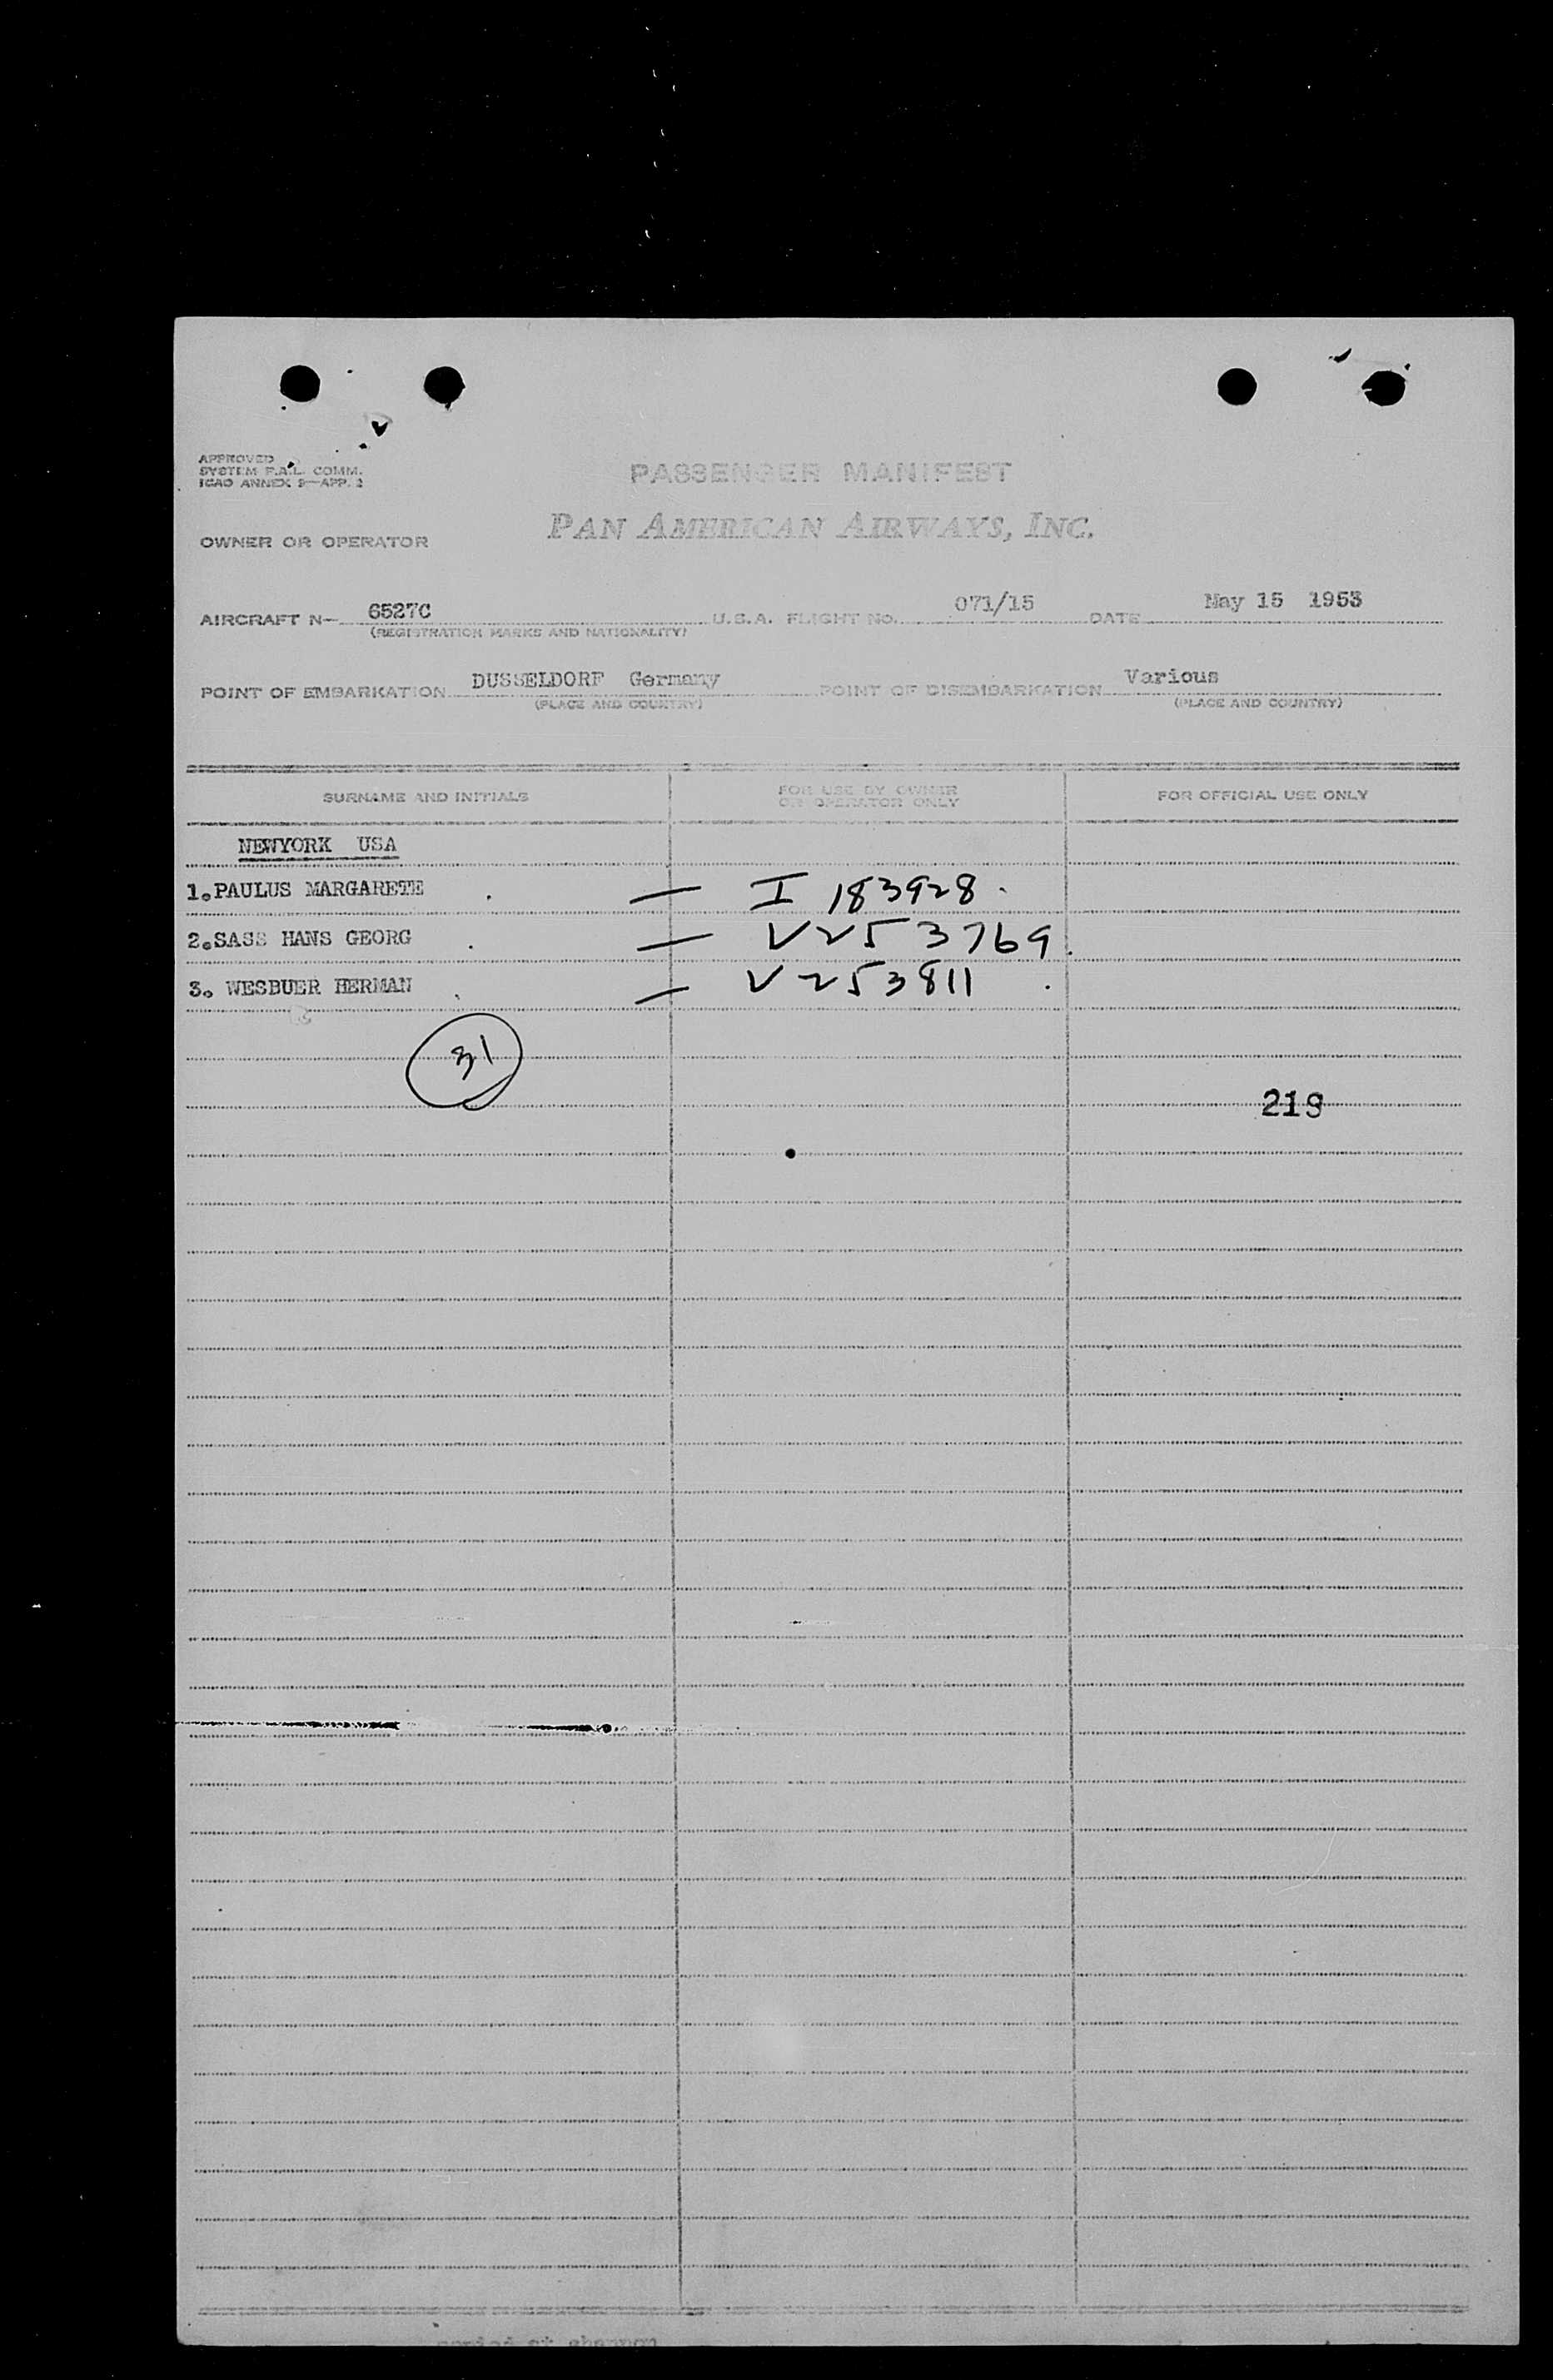 APPROVED
SYSTEM F.A.L. COMM.
ICAO ANNEX 9—APP. 2
PASSENGER MANIFEST
PAN AMERICAN AIRWAYS, INC.
OWNER OR OPERATOR
AIRCRAFT N- 6527C U.S.A. FLIGHT NO. 071/15 DATE May 15 1953
(REGISTRATION MARKS AND NATIONALITY)
POINT OF EMBARKATION DUSSELDORF Germany POINT OF DISEMBARKATION Various
(PLACE AND COUNTRY) (PLACE AND COUNTRY)
SURNAME AND INITIALS FOR USE BY OWNER OR OPERATOR ONLY FOR OFFICIAL USE ONLY
NEWYORK USA
1.PAULUS MARGARETE . — I 183928 .
2.SASS HANS GEORG . — V253769 .
3. WESBUER HERMAN . — V253811 .
31
219